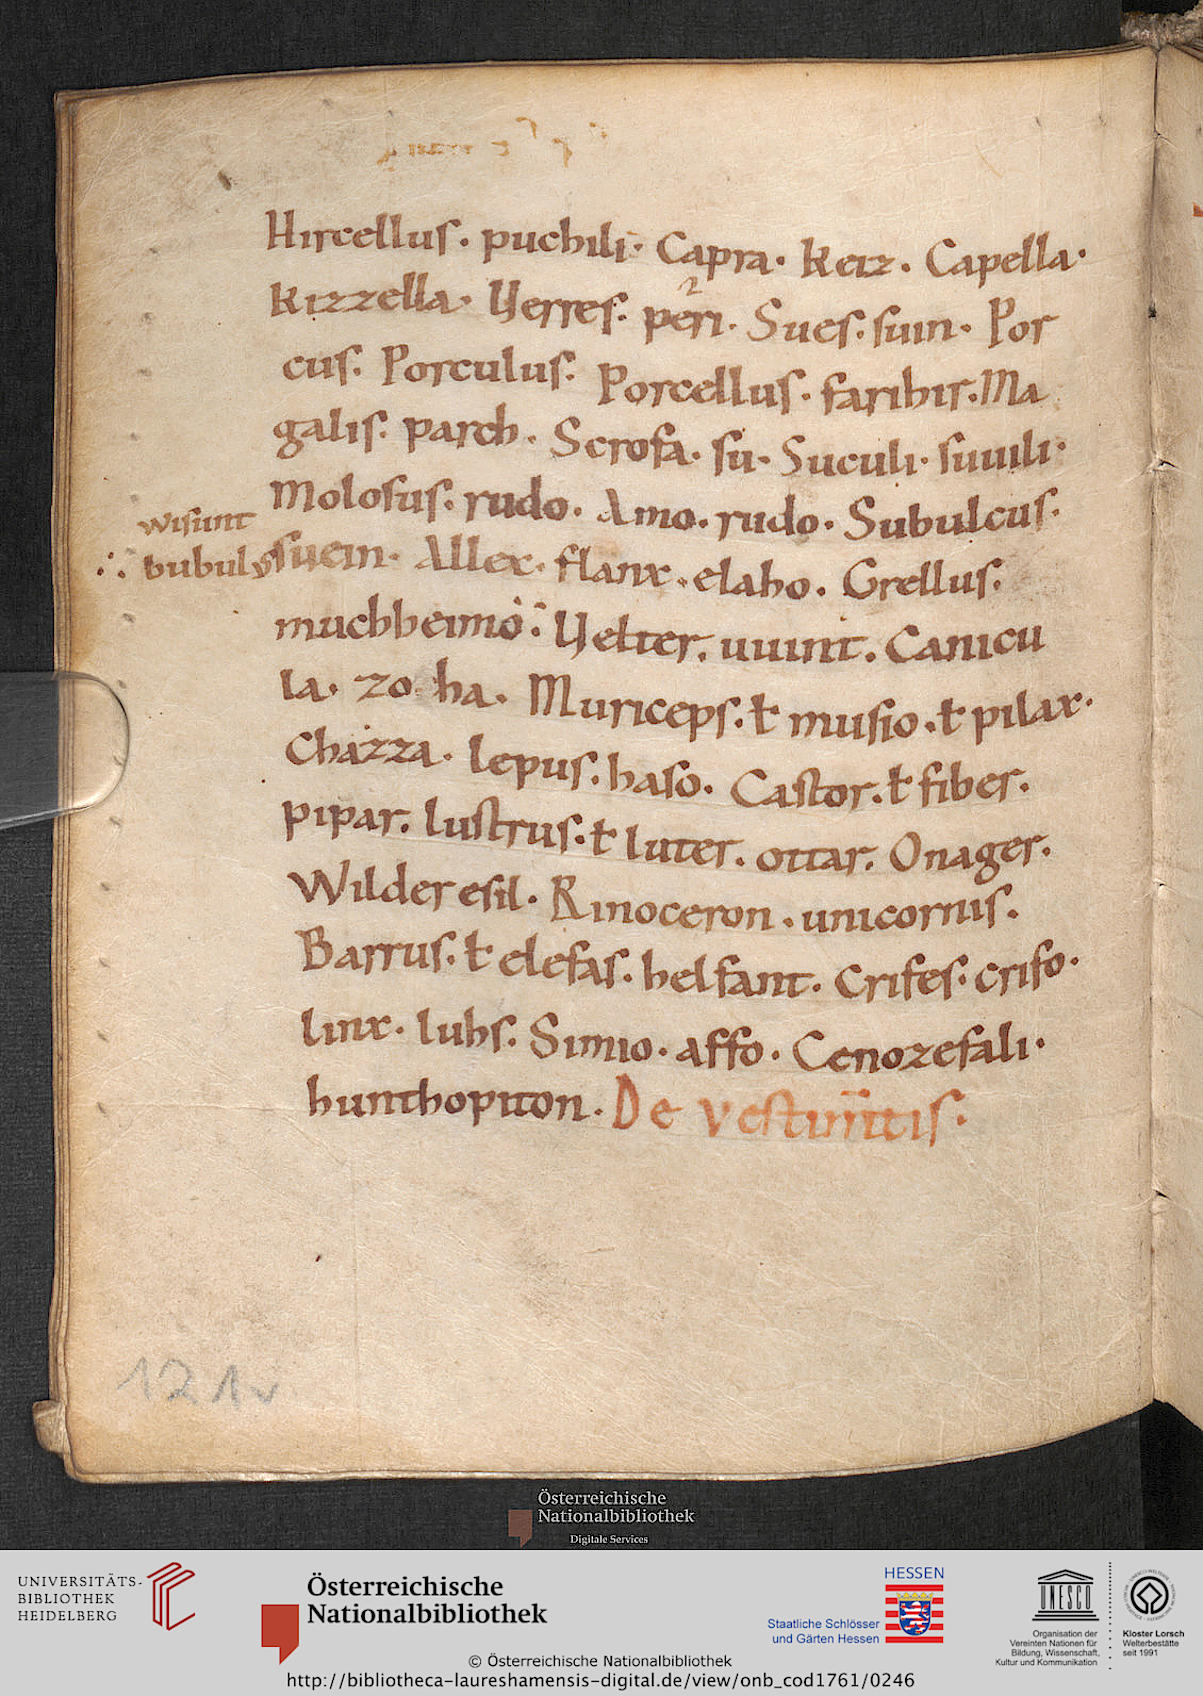 Hircellus. puchili. Capra. Keiz. Capella.
Kizzella. Verres. peri. Sues. suin. Por
cus. Porculus. Porcellus. farihir. Ma
galis. parch. Scrofa. su. Suculi. suuili.
Molosus. rudo. Amo. rudo. Subulcus.
wisunt
∴ bubulus
suein. Allex. flanx. elaho. Grellus.
muchheimo ∴ Velter. uuint. Canicu
la. zoha. Muriceps. ł musio. ł pilax.
Chazza. lepus. haso. Castor. ł fiber.
pipar. lustrus. ł luter. ottar. Onager.
Wilder esil. Rinoceron. unicornis.
Barrus. ł elefas. helfant. Crifes. crifo.
linx. luhs. Simio. affo. Cenozefali.
hunthopiton. De vestim̄tis.
121v
Österreichische
Nationalbibliothek
Digitale Services
UNIVERSITÄTS-
BIBLIOTHEK
HEIDELBERG
Österreichische
Nationalbibliothek
HESSEN
Staatliche Schlösser
und Gärten Hessen
UNESCO
Organisation der
Vereinten Nationen für
Bildung, Wissenschaft,
Kultur und Kommunikation
Kloster Lorsch
Welterbestätte
seit 1991
© Österreichische Nationalbibliothek
http://bibliotheca-laureshamensis-digital.de/view/onb_cod1761/0246